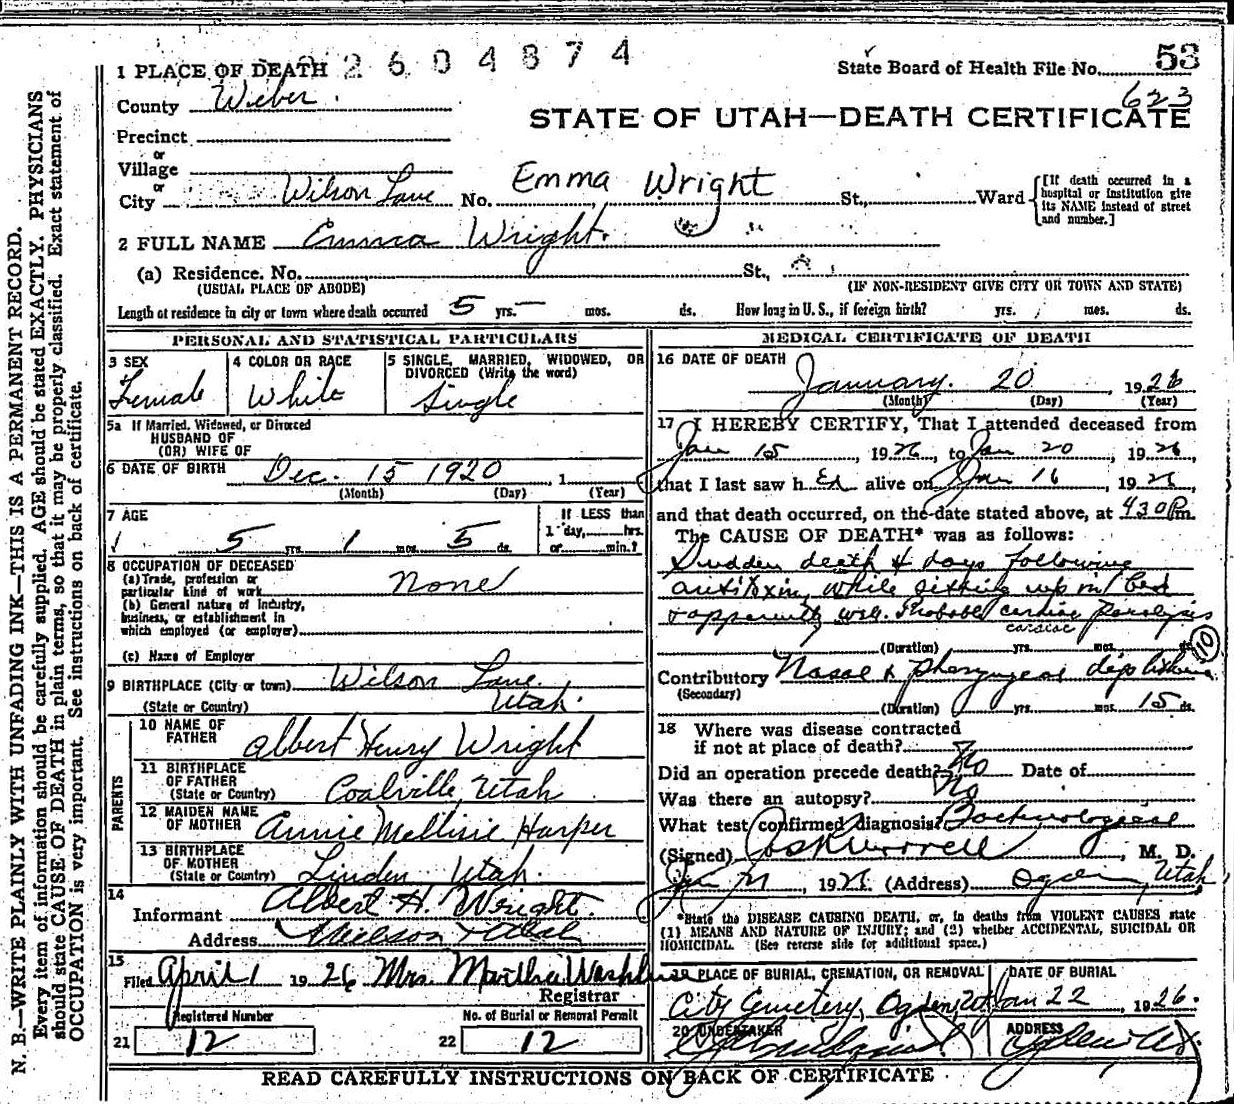 N. B.—WRITE PLAINLY WITH UNFADING INK—THIS IS A PERMANENT RECORD.
Every item of information should be carefully supplied. AGE should be stated EXACTLY. PHYSICIANS
should state CAUSE OF DEATH in plain terms, so that it may be properly classified. Exact statement of
OCCUPATION is very important. See instructions on back of certificate.
2604874
State Board of Health File No. 53
623
STATE OF UTAH—DEATH CERTIFICATE
1 PLACE OF DEATH
County Weber.
Precinct
or
Village
or
City Wilson Lane No. Emma Wright St., Ward
[If death occurred in a
hospital or institution give
its NAME instead of street
and number.]
2 FULL NAME Emma Wright.
(a) Residence. No. St.,
(USUAL PLACE OF ABODE) (IF NON-RESIDENT GIVE CITY OR TOWN AND STATE)
Length of residence in city or town where death occurred 5 yrs. — mos. ds. How long in U. S., if foreign birth? yrs. mos. ds.
PERSONAL AND STATISTICAL PARTICULARS
3 SEX
Female
4 COLOR OR RACE
White
5 SINGLE, MARRIED, WIDOWED, OR
DIVORCED (Write the word)
Single
5a If Married, Widowed, or Divorced
HUSBAND OF
(OR) WIFE OF
6 DATE OF BIRTH Dec. 15 1920, 1
(Month) (Day) (Year)
7 AGE
5 yrs. 1 mos. 5 ds.
If LESS than
1 day, hrs.
or min.?
8 OCCUPATION OF DECEASED
(a) Trade, profession or
particular kind of work None
(b) General nature of Industry,
business, or establishment in
which employed (or employer)
(c) Name of Employer
9 BIRTHPLACE (City or town) Wilson Lane.
(State or Country) Utah.
PARENTS
10 NAME OF
FATHER Albert Henry Wright
11 BIRTHPLACE
OF FATHER
(State or Country) Coalville, Utah
12 MAIDEN NAME
OF MOTHER Annie Harper
13 BIRTHPLACE
OF MOTHER
(State or Country) Linden Utah.
14
Informant Albert H. Wright.
Address
15
Filed April 1 1926 Mrs. Martha Washburn
Registrar
Registered Number
21 12
No. of Burial or Removal Permit
22 12
MEDICAL CERTIFICATE OF DEATH
16 DATE OF DEATH
January. 20 1926
(Month) (Day) (Year)
17 I HEREBY CERTIFY, That I attended deceased from
Jan 15, 1926, to Jan 20, 1926,
that I last saw h er alive on Jan 16, 1926,
and that death occurred, on the date stated above, at 430 P m.
The CAUSE OF DEATH* was as follows:
Sudden death 4 days following
antitoxin, while sitting up in bed
& apparently well. Probable cardiac paralysis
cardiac
(Duration) yrs. mos. ds.
10
Contributory Nasal & pharyngeal diphtheria
(Secondary)
(Duration) yrs. mos. 15 ds.
18 Where was disease contracted
if not at place of death?
Did an operation precede death? No Date of
Was there an autopsy? No
What test confirmed diagnosis?
(Signed), M. D.
1926 (Address) Ogden, Utah
*State the DISEASE CAUSING DEATH, or, in deaths from VIOLENT CAUSES state
(1) MEANS AND NATURE OF INJURY; and (2) whether ACCIDENTAL, SUICIDAL OR
HOMICIDAL. (See reverse side for additional space.)
19 PLACE OF BURIAL, CREMATION, OR REMOVAL
City Cemetery, Ogden, Ut
DATE OF BURIAL
Jan 22 1926.
20 UNDERTAKER
ADDRESS
Ogden Ut.
READ CAREFULLY INSTRUCTIONS ON BACK OF CERTIFICATE